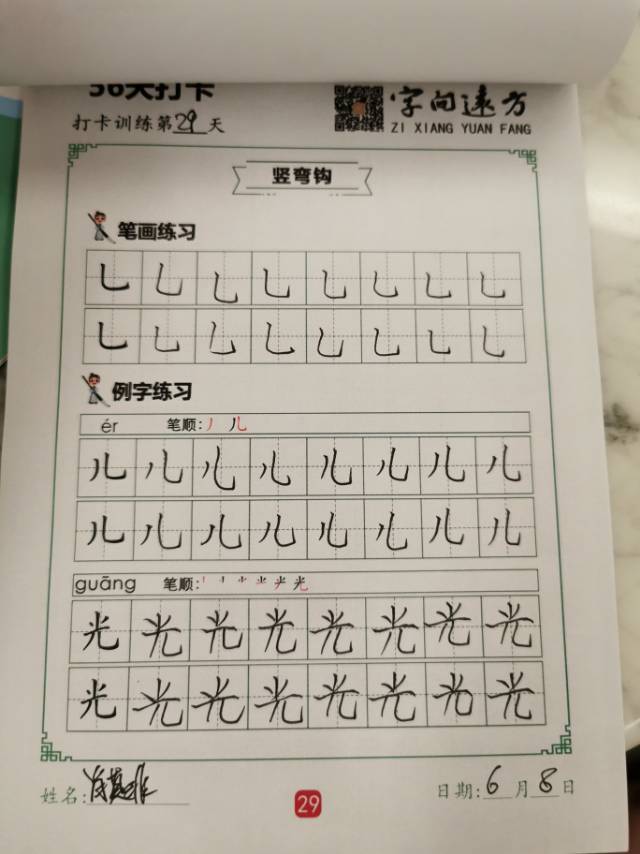 56天打卡
打卡训练第29天
字向遠方
ZI XIANG YUAN FANG
竖弯钩
笔画练习
乚 乚 乚 乚 乚 乚 乚 乚
乚 乚 乚 乚 乚 乚 乚 乚
例字练习
ér 笔顺: 丿 儿
儿 儿 儿 儿 儿 儿 儿 儿
儿 儿 儿 儿 儿 儿 儿 儿
guāng 笔顺:
光 光 光 光 光 光 光 光
光 光 光 光 光 光 光 光
姓名:
29
日期: 6月8日